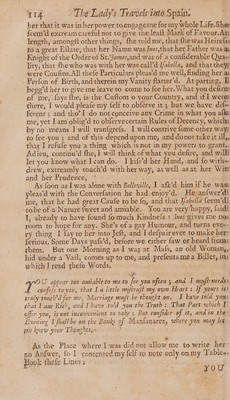 114 The Lady's Travels into Spain.
her that it was in her power to engage me for my whole Life. She
seem'd extream careful not to give me the least Mark of Favour. At
length, amongst other things, she told me, that she was Heiress
to a great Estate, that her Name was Ines, that her Father was a
Knight of the Order of St. James, and was of a considerable Qua-
lity, that she who was with her was call'd Isabella, and that they
were Cousins. All these Particulars pleas'd me well, finding her a
Person of Birth, and therein my Vanity flatter'd. At parting, I
begg'd her to give me leave to come to see her. What you desire
of me, says she, is the Custom in your Country, and if I were
there, I would please my self to observe it; but we have diffe-
rent; and tho' I do not conceive any Crime in what you ask
me, yet I am oblig'd to observe certain Rules of Decency, which
by no means I will transgress. I will contrive some other way
to see you; and of this depend upon me, and do not take it ill,
that I refuse you a thing which is not in my power to grant.
Adieu, continu'd she, I will think of what you desire, and will
let you know what I can do. I kiss'd her Hand, and so with-
drew, extreamly touch'd with her way, as well as at her Wit
and her Prudence.
As soon as I was alone with Belleville, I ask'd him if he was
pleas'd with the Conversation he had enjoy'd. He answer'd
me, that he had great Cause to be so, and that Isabella seem'd
to be of a Nature sweet and amiable. You are very happy, said
I, already to have found so much Kindness: Ines gives me no
room to hope for any. She's of a gay Humour, and turns eve-
ry thing I say to her into Jest, and I despair ever to make her
serious. Some Days pass'd, before we either saw or heard from
them. But one Morning as I was at Mass, an old Woman,
hid under a Vail, comes up to me, and presents me a Billet, in
which I read these Words.
YOU appear too amiable to me to see you often; and I must needs
confess to you, that I a little mistrust my own Heart: If yours is
truly touch'd for me, Marriage must be thought on. I have told you
that I am Rich, and I have told you the Truth: That Part which I
offer you, is not inconvenient to take: But consider of it, and in the
Evening I shall be on the Banks of Mansanares, where you may let
me know your Thoughts.
As the Place where I was did not allow me to write her
no Answer, so I contented my self to note only on my Table-
Book these Lines;
YOU